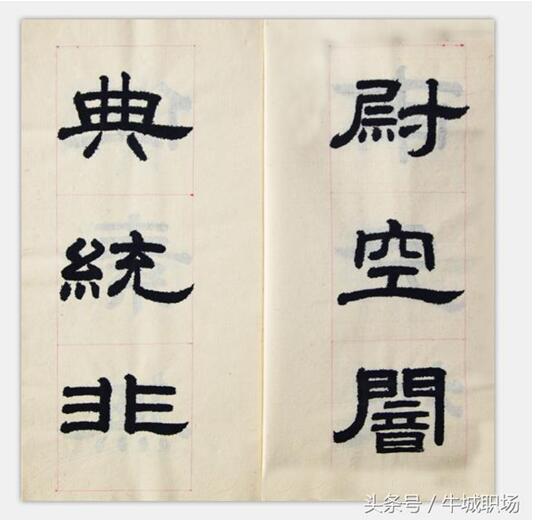 尉空闇
典統非
头条号 / 牛城职场